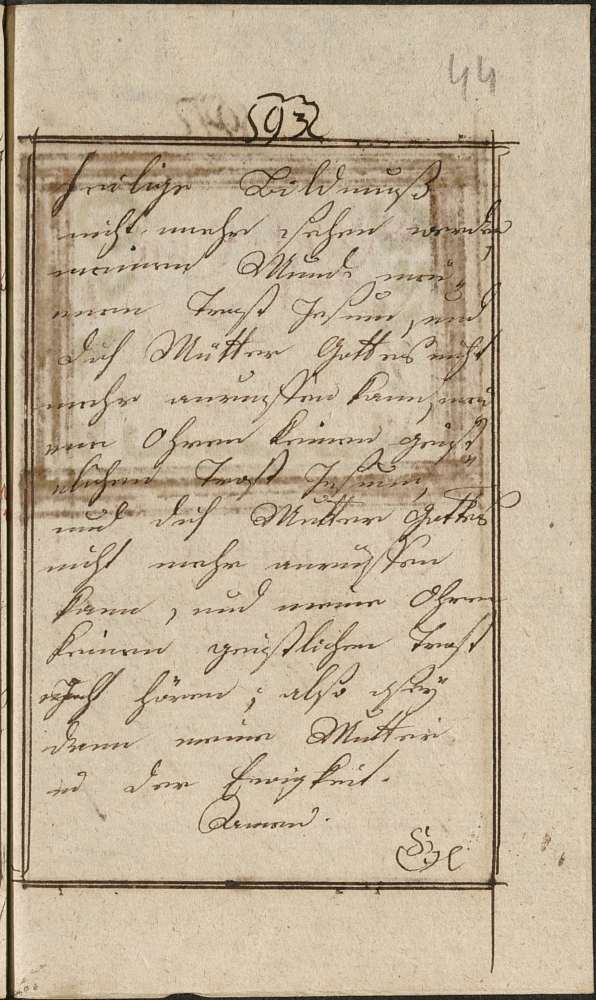 44
93
heilige Bildnuß
nicht mehr sehen werden,
meinem Mund mei„
nen Trost Jesum, und
dich Mutter Gottes nicht
mehr anruffen kann, mei„
ne Ohren keinen geist„
lichen Trost Jesum,
und dich Mutter Gottes
nicht mehr anruffen
kann, und meine Ohren
keinen geistlichen Trost
hören; also sey
dann meine Mutter
in der Ewigkeit.
Amen.